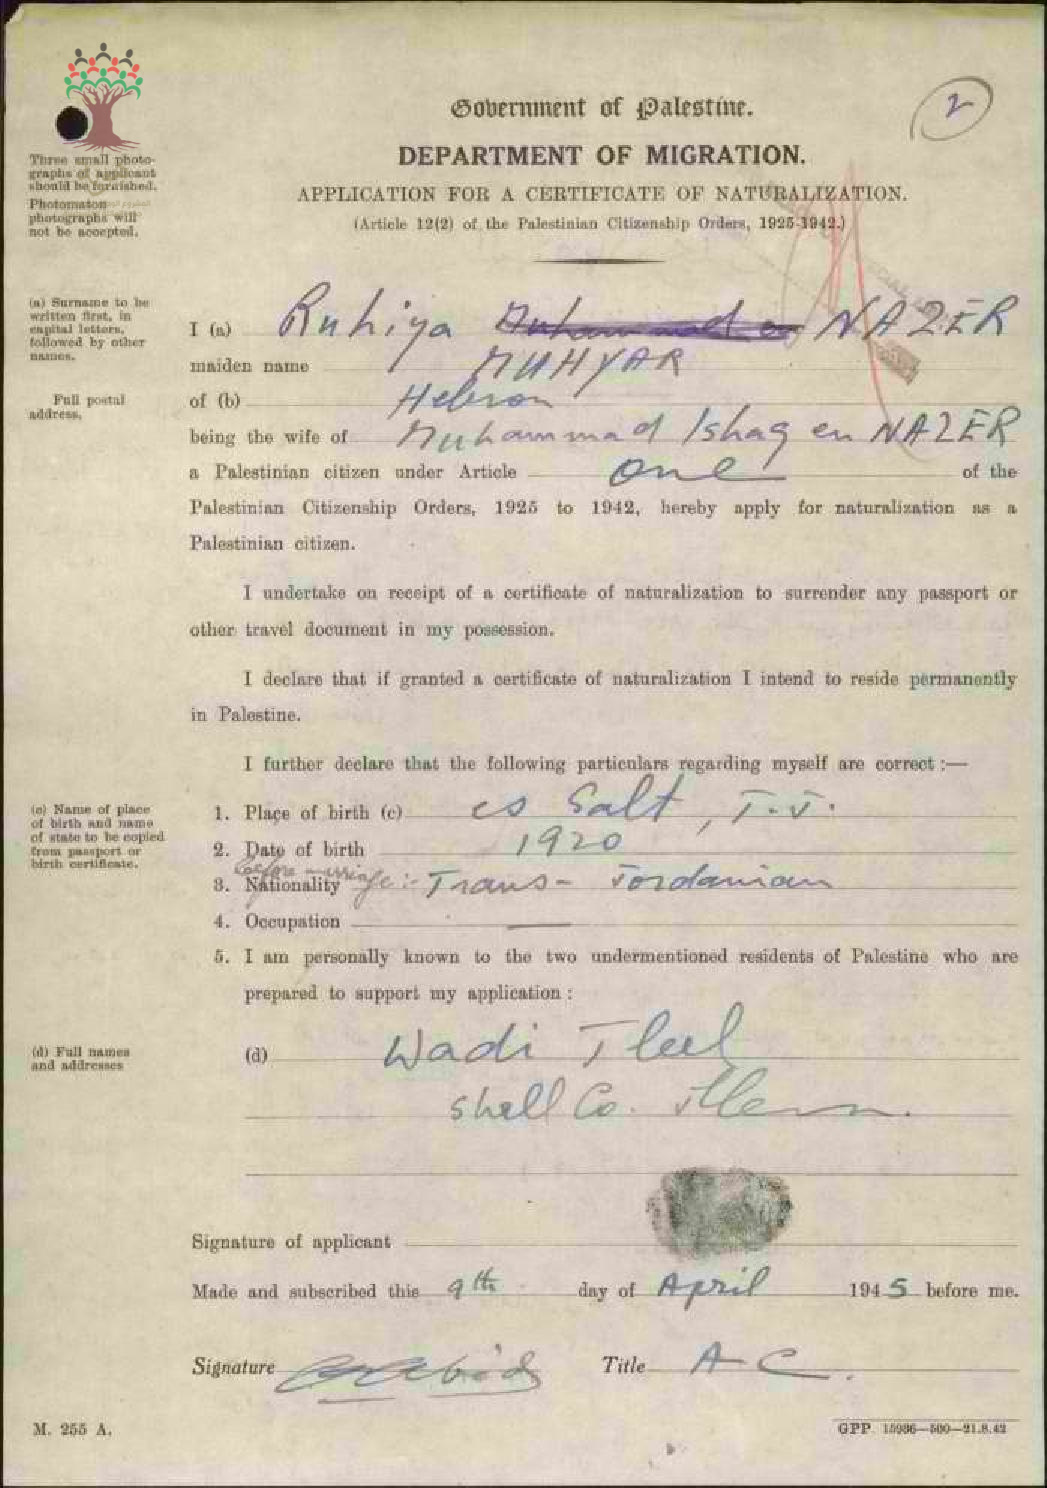 2
Government of Palestine.
DEPARTMENT OF MIGRATION.
APPLICATION FOR A CERTIFICATE OF NATURALIZATION.
(Article 12(2) of the Palestinian Citizenship Orders, 1925-1942.)
Three small photo-
graphs of applicant
should be furnished.
Photomaton
photographs will
not be accepted.
(a) Surname to be
written first, in
capital letters,
followed by other
names.
I (a) Ruhiya NAZER
maiden name MUHYAR
Full postal
address.
of (b) Hebron
being the wife of Muhammad Ishaq en NAZER
a Palestinian citizen under Article one of the
Palestinian Citizenship Orders, 1925 to 1942, hereby apply for naturalization as a
Palestinian citizen.
I undertake on receipt of a certificate of naturalization to surrender any passport or
other travel document in my possession.
I declare that if granted a certificate of naturalization I intend to reside permanently
in Palestine.
I further declare that the following particulars regarding myself are correct :—
(c) Name of place
of birth and name
of state to be copied
from passport or
birth certificate.
1. Place of birth (c) es Salt, T.J.
2. Date of birth 1920
before marriage :-
3. Nationality Trans-Jordanian
4. Occupation —
5. I am personally known to the two undermentioned residents of Palestine who are
prepared to support my application :
(d) Full names
and addresses
(d) Wadi Tleel
Shell Co.
Signature of applicant
Made and subscribed this 9th day of April 1945 before me.
Signature Title A C.
M. 255 A.
GPP. 15986—500—21.8.42